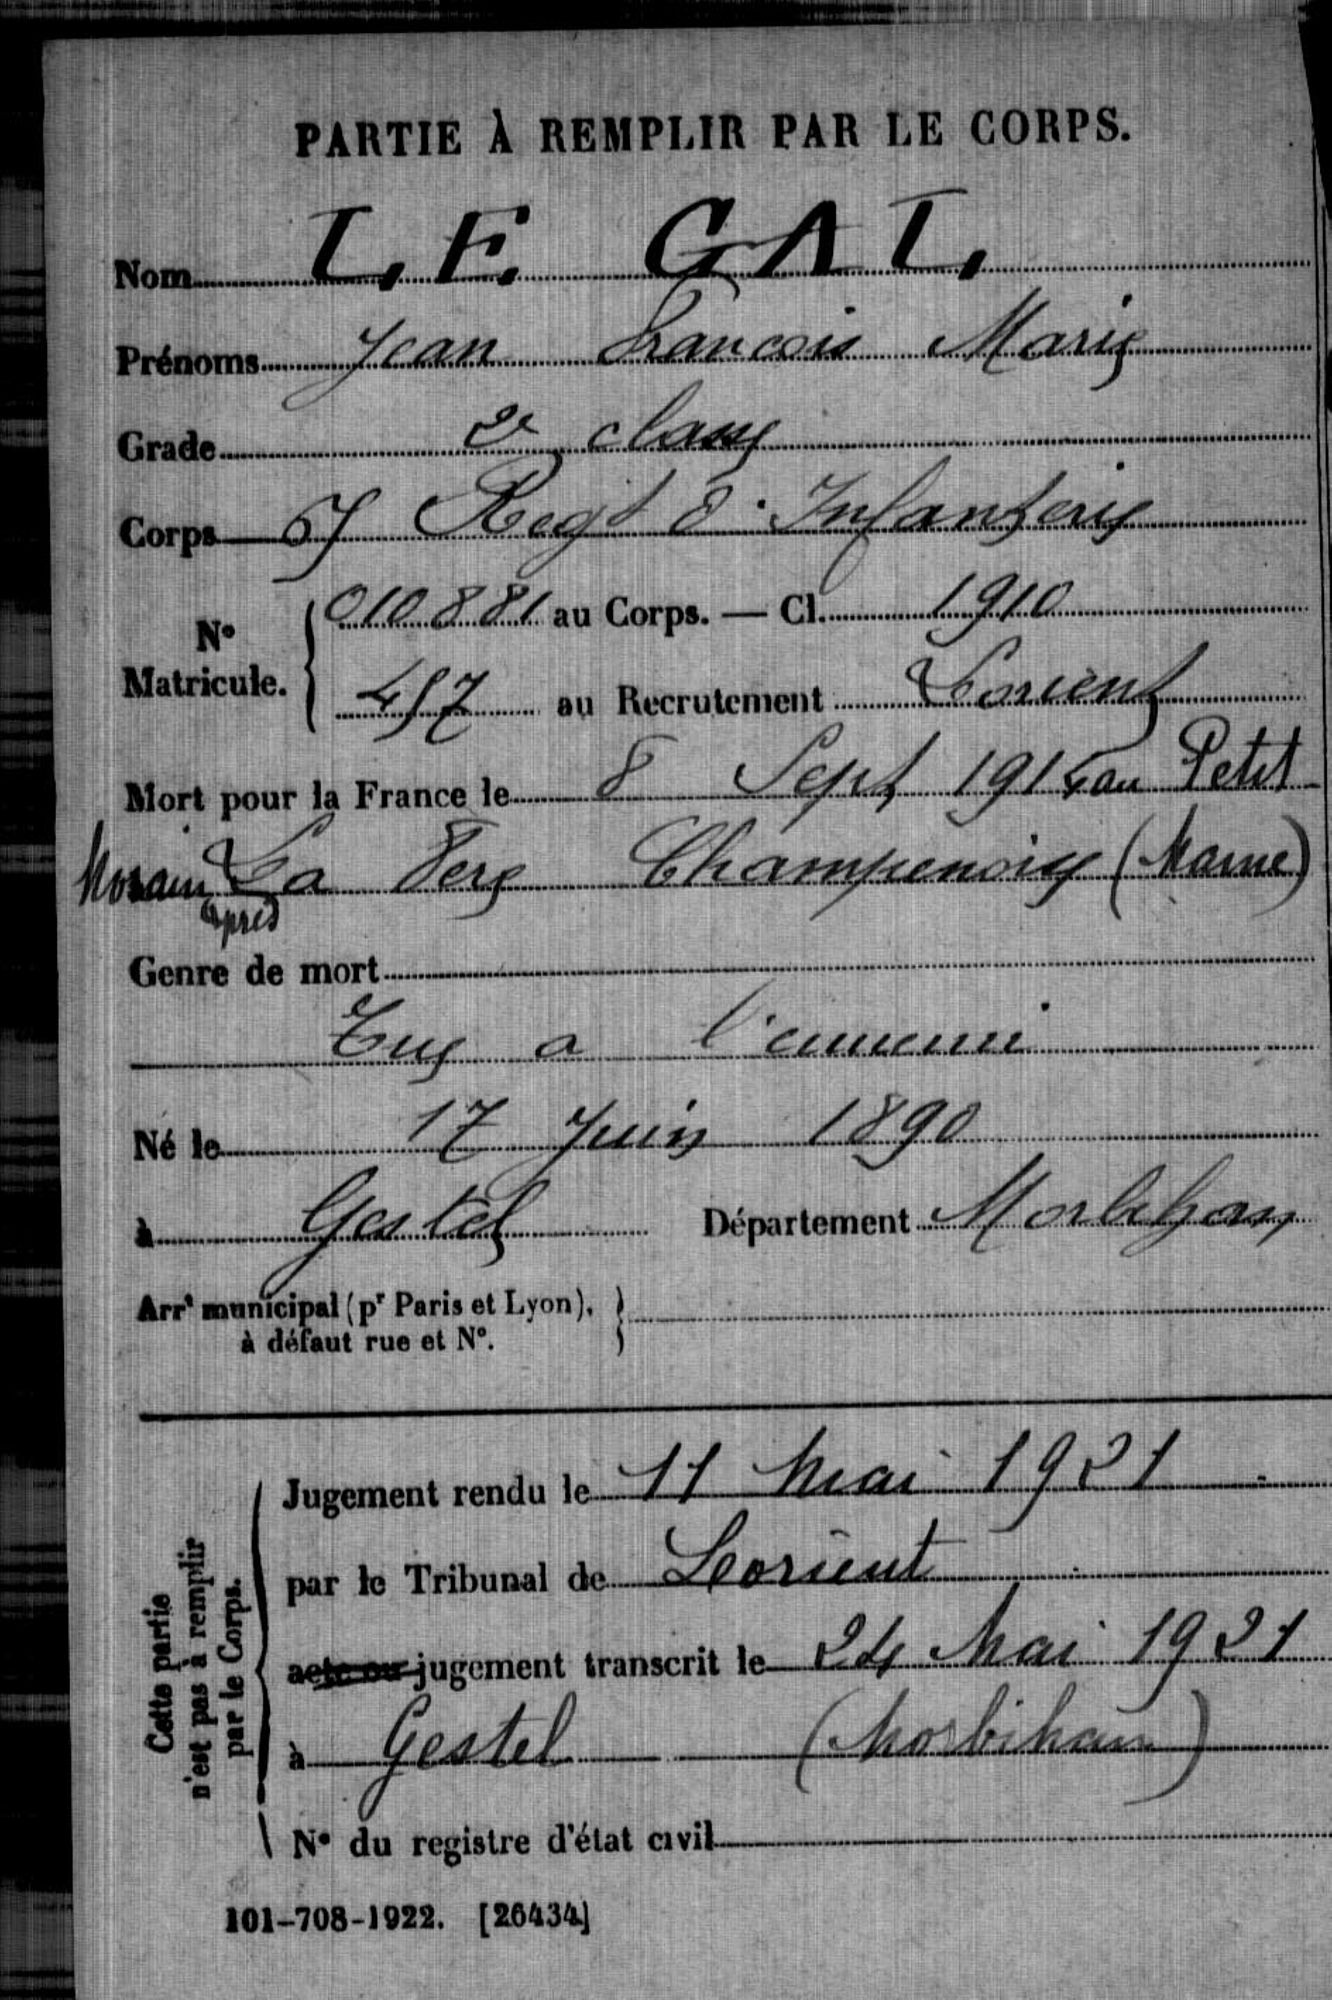 PARTIE À REMPLIR PAR LE CORPS.
Nom LE GAL
Prénoms Jean Francois Marie
Grade 2e classe
Corps Regt d'Infanterie
N° Matricule. 010881 au Corps. — Cl. 1910
457 au Recrutement Lorient
Mort pour la France le 8 Sept 1914 au Petit
Morain La Fere Champenoise (Marne)
après
Genre de mort
Tue a l'ennemi
Né le 17 Juin 1890
à Gestel Département Morbihan
Arrt municipal (pr Paris et Lyon),
à défaut rue et N°.
Cette partie
n'est pas à remplir
par le Corps.
Jugement rendu le 11 Mai 1921
par le Tribunal de Lorient
acte ou jugement transcrit le 24 Mai 1921
à Gestel (Morbihan)
N° du registre d'état civil
101-708-1922. [26434]